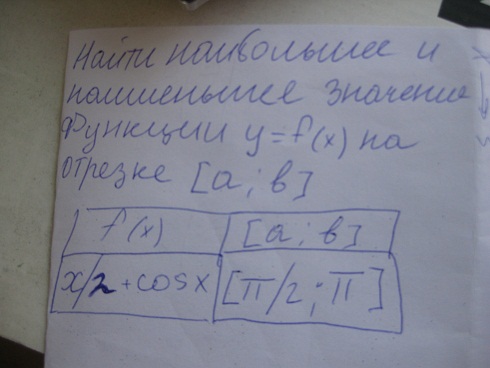 Найти наибольшее и
наименьшее значение
функции y=f(x) на
отрезке [a; b]
f(x) [a; b]
x/2+cosx [π/2; π]